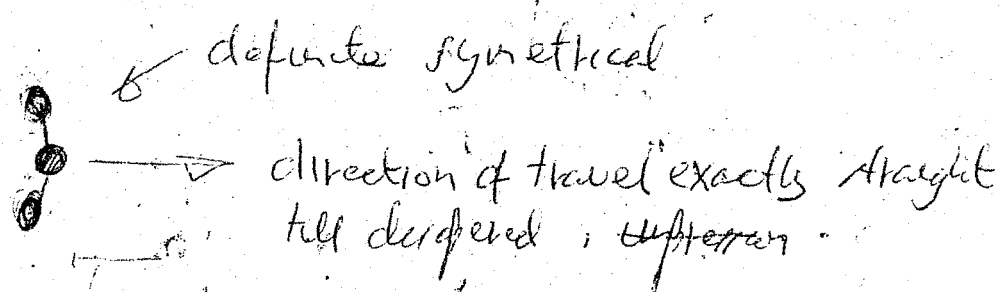 definite symetrical
direction of travel exactly straight
till